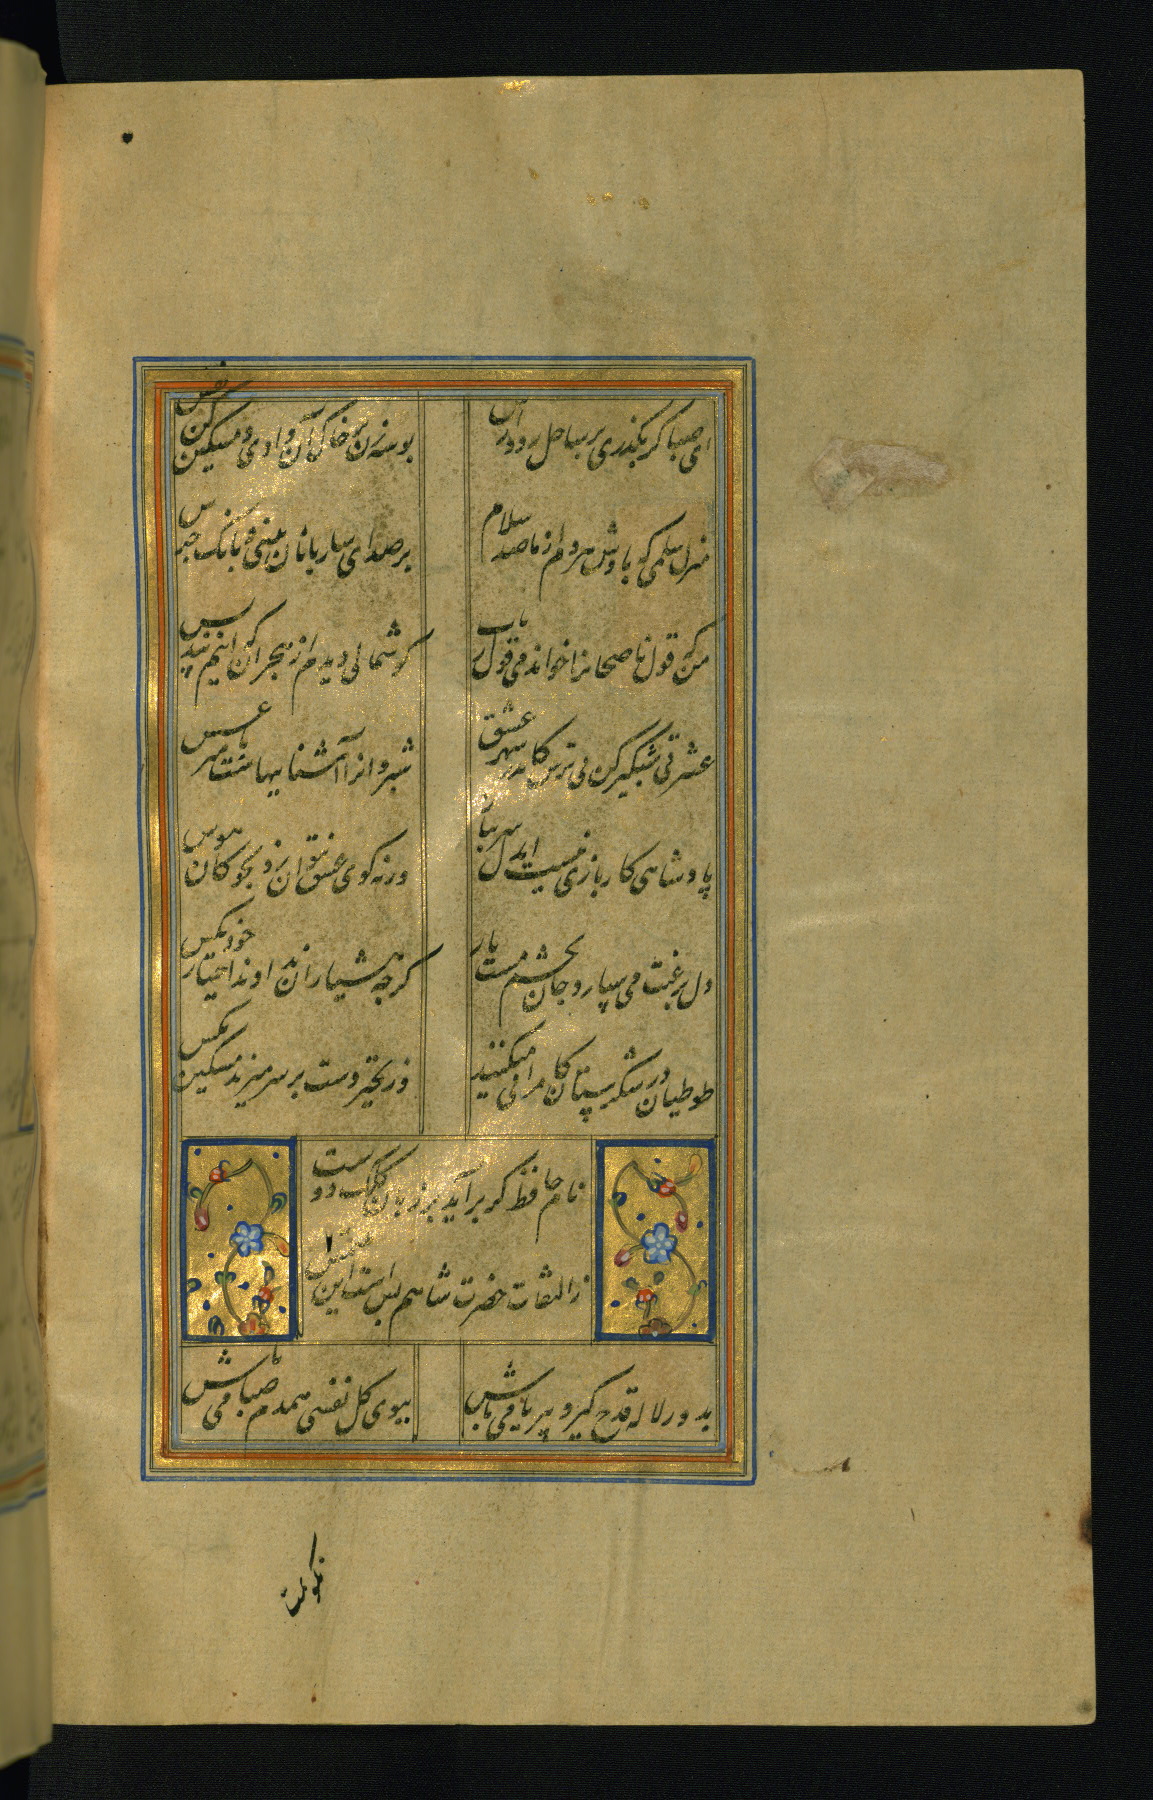 ای صبا گر بگذری بر ساحل رود ارس
بوسه زن بر خاک آن وادی و مشکین کن نفس
منزل سلمی که بادش هر دم از ما صد سلام
پر صدای ساربانان بینی و بانک جرس
من که قول ناصحانرا خواندمی قول رباب
گوشمالی دیدم از هجران که اینم پند بس
عشرتی شبگیر کن می ترس کاندر شهر عشق
شبروانرا آشناییهاست با میر عسس
پادشاهی کار بازی نیست ایدل سر بباز
ورنه کوی عشق نتوان زد بچوکان هوس
دل برغبت می سپارد جان بچشم مست یار
کرچه هشیاران ندادند اختیار خود بکس
طوطیان در شکرستان کامرانی میکنند
وز تحیر دست بر سر میزند مسکین مکس
نام حافظ کر برآید بر زبان کلک دوست
از التفات حضرت شاهم بس است این ملتمس
بدور لاله قدح کیر و بیریا می باش
ببوی کل نفسی همدم صبا می باش
نکویمت